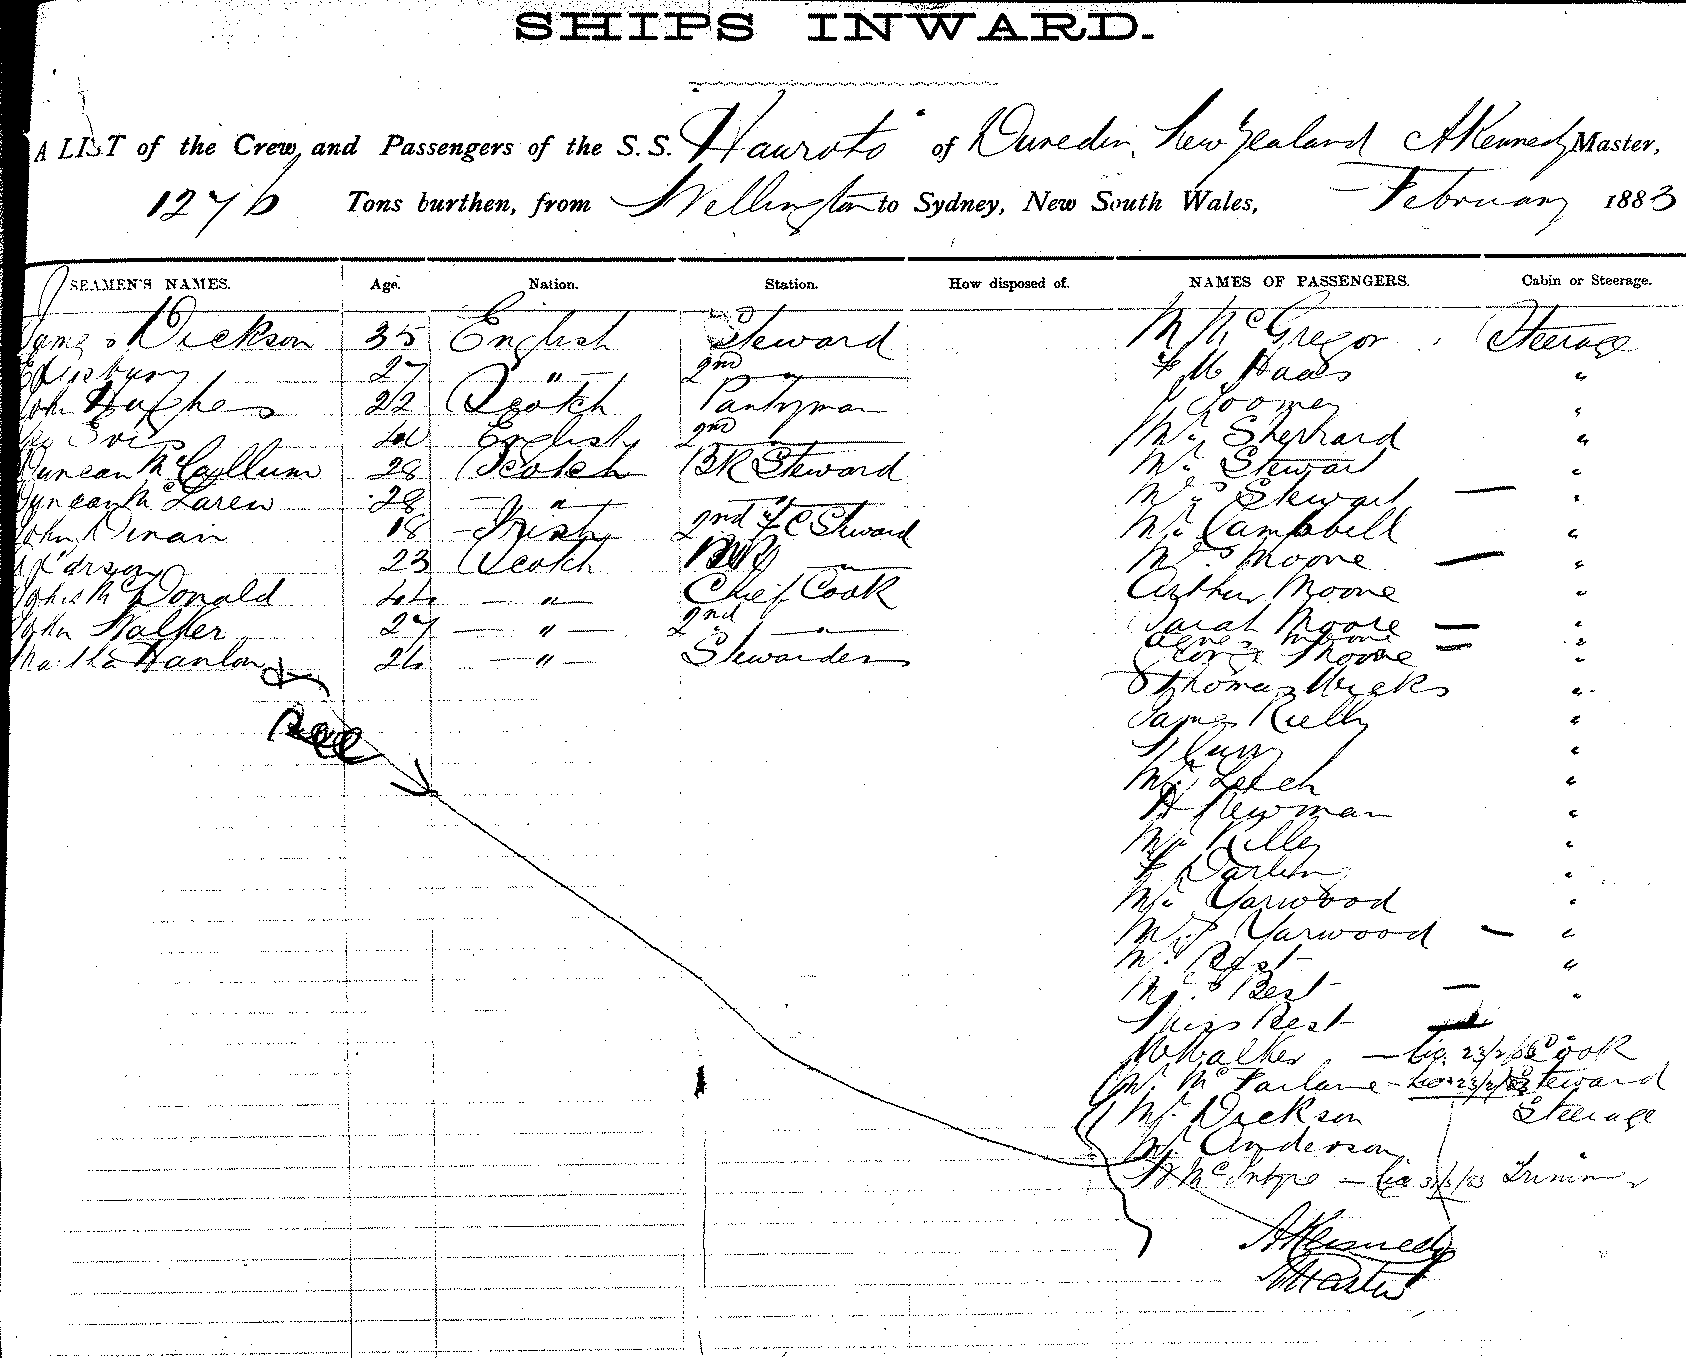 SHIPS INWARD.
A LIST of the Crew and Passengers of the S.S. "Hauroto" of Dunedin, New Zealand A Kennedy Master,
1276 Tons burthen, from Wellington to Sydney, New South Wales, February 1883
SEAMEN'S NAMES. Age. Nation. Station. How disposed of. NAMES OF PASSENGERS. Cabin or Steerage.
James Dickson 35 English Steward M McGregor Steerage
27 " 2nd " Haas "
John Hughes 22 Scotch Pantryman Toomey "
40 English 2nd Mr Sherrard "
Duncan McCallum 28 Scotch BR Steward Mr Stewart "
Duncan McLaren 28 " Mrs Stewart — "
John Dinan 18 Irish 2nd Steward Mr Campbell "
23 Scotch Mrs Moore — "
McDonald 44 " Chief Cook Arthur Moore "
John Walker 27 " 2nd " Sarah Moore — "
Moore — "
Hanlon 26 " Stewardess George Moore "
Thomas Weeks "
James Rielly "
"
Mr Leech "
H Newman "
Mr Killey "
"
Mr Yarwood "
Mrs Yarwood — "
Mr Best "
Mrs Best — "
Miss Best
W Walker — 23/2/83 Cook
Mr McFarlane — 23/2/83 Steward
Mr Dickson Steerage
Mr Anderson
McIntyre — Trimmer
A Kennedy
Master